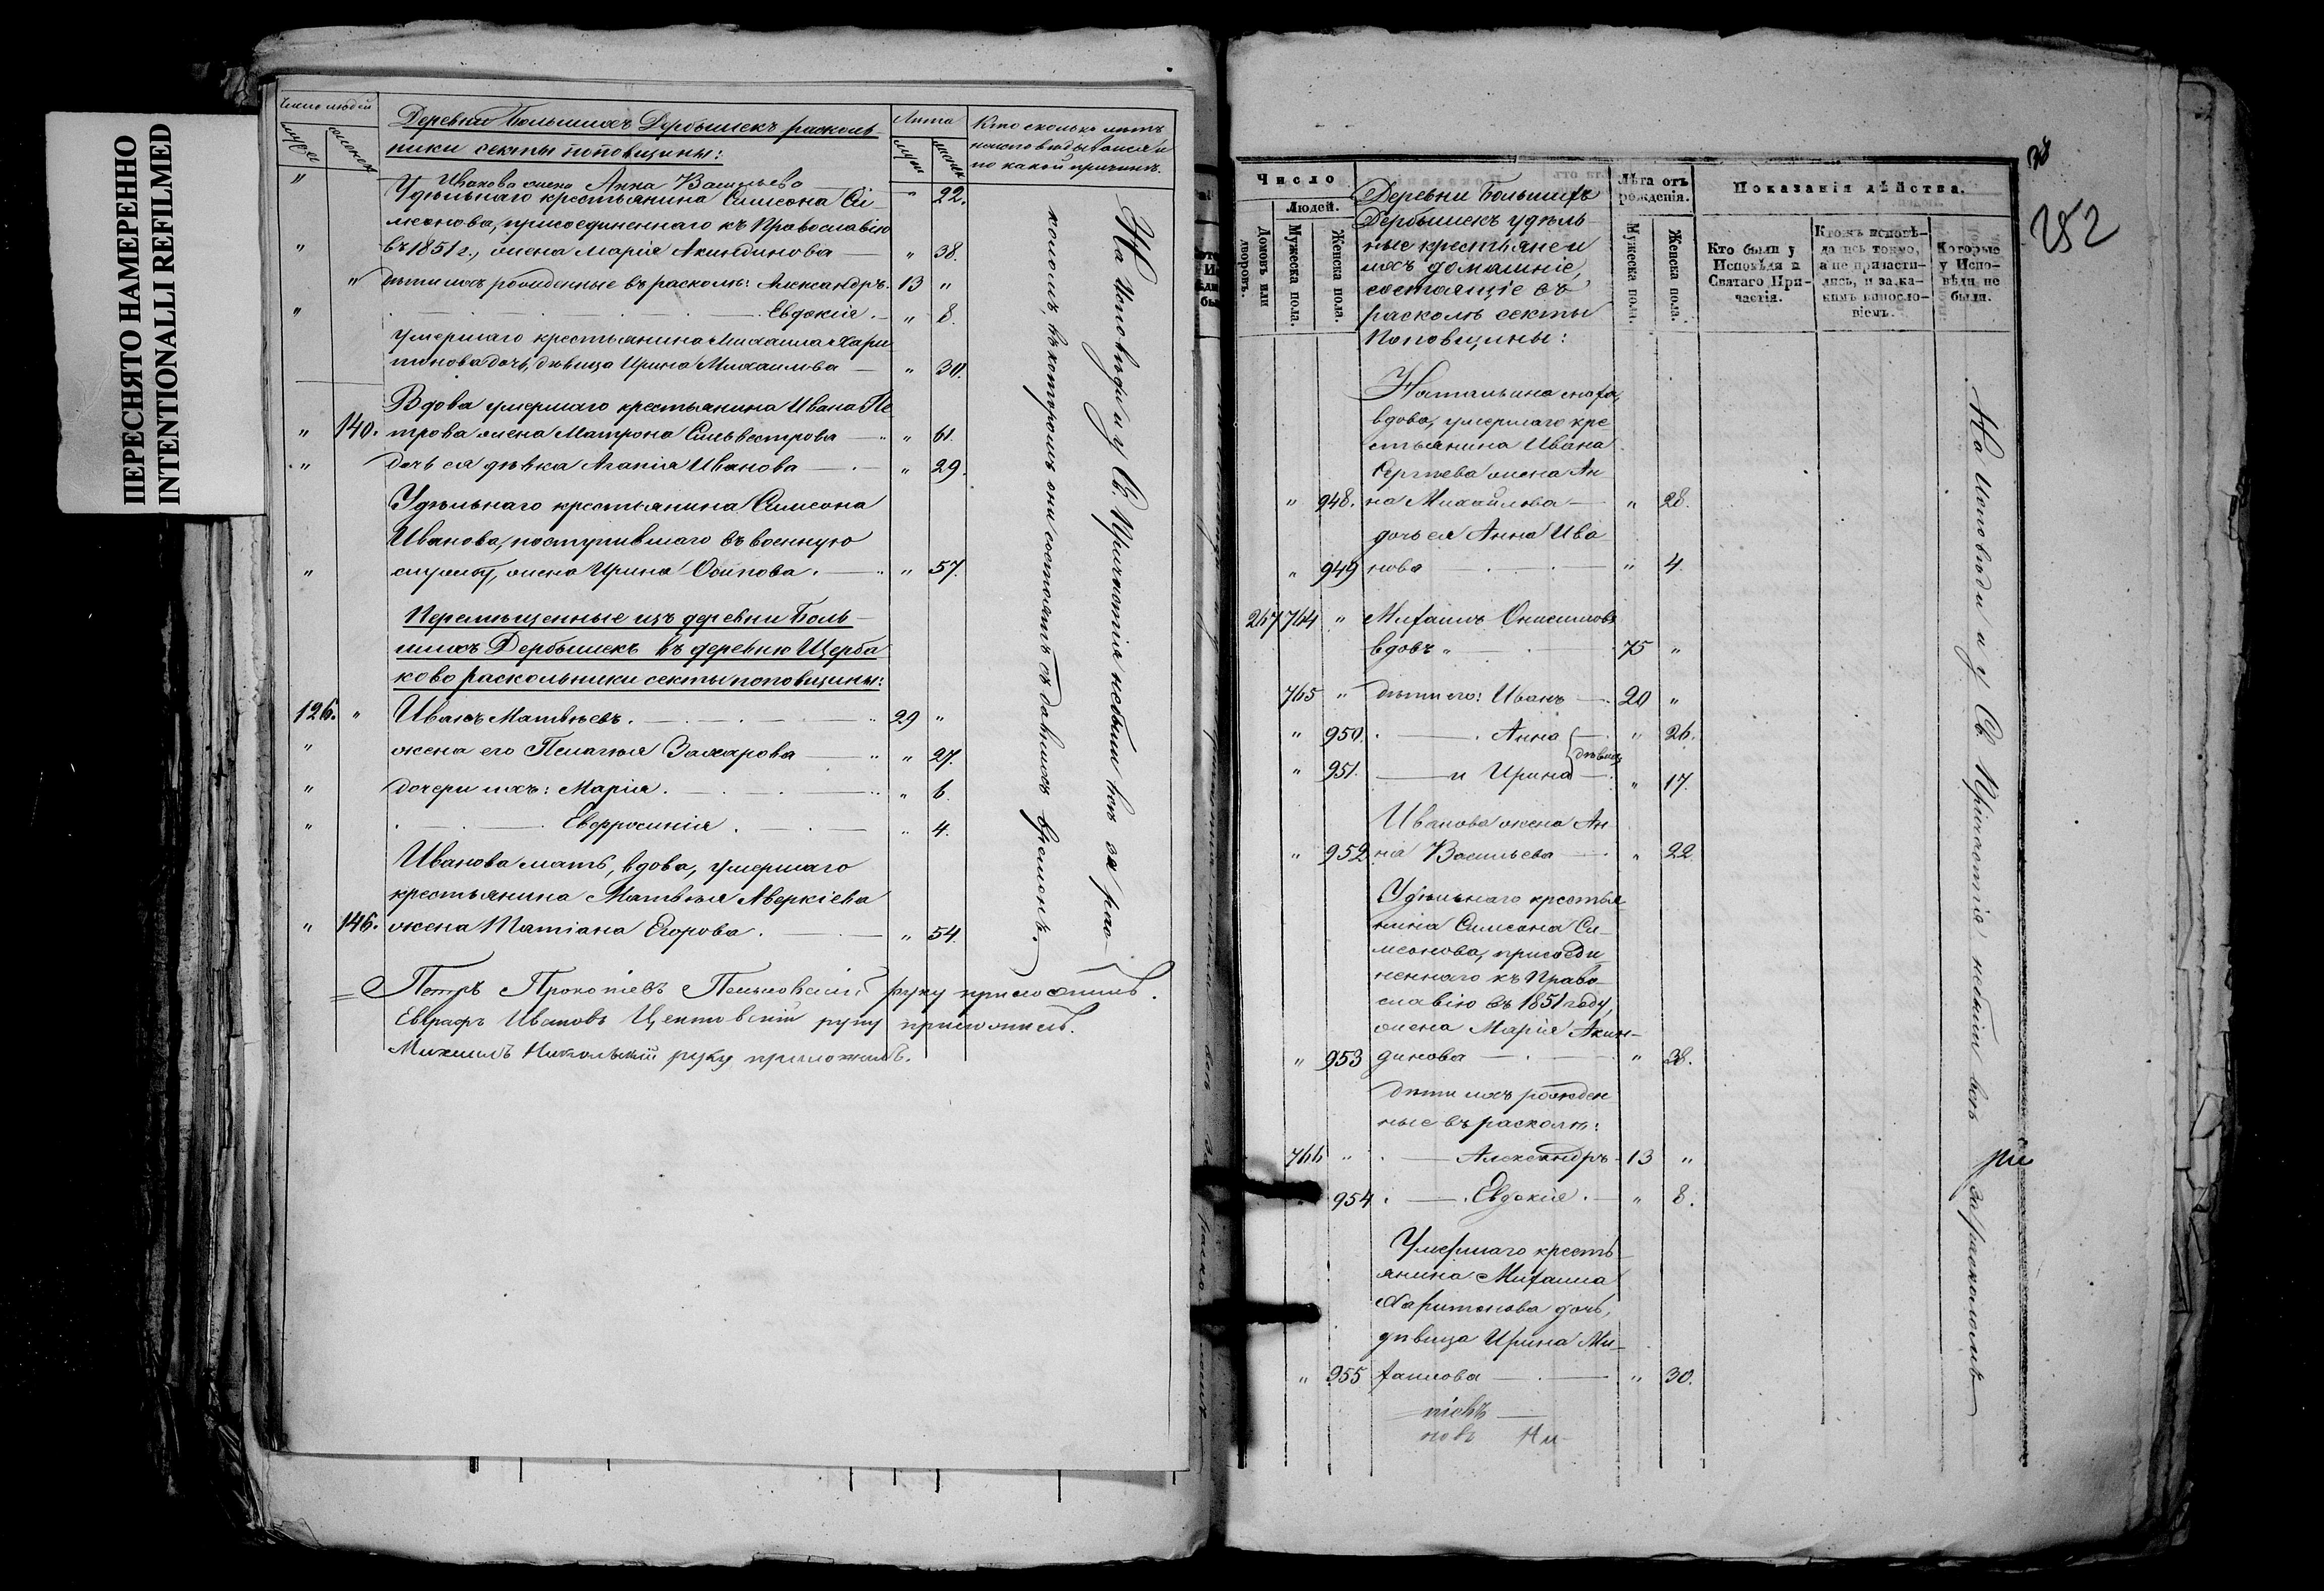 ПЕРЕСНЯТО НАМЕРЕННО
INTENTIONALLI REFILMED
Число людей
мужей
женск
Деревни Большихъ Дербышекъ расколь-
ники секты поповщины:
Лѣта
муж
женск
Кто сколько лѣтъ
неисповѣдывался и
по какой причинѣ.
" Иванова жена Анна Васильева " 22.
Удѣльнаго крестьянина Симеона Си-
меонова, присоединеннаго къ Православію
" въ 1851 г., жена Марія Акиндинова — " 38.
" дѣти ихъ рожденные въ расколѣ: Александръ. 13 "
" Евдокія. — " 8.
Умершаго крестьянина Михаила Хари
тонова дочь, дѣвица Ирина Михаилова — " 30.
Вдова умершаго крестьянина Ивана Пе
" 140. трова жена Матрона Сильвестрова — " 61.
" дочь ея дѣвка Агапія Иванова — " 29.
Удѣльнаго крестьянина Симеона
Иванова, поступившаго въ военную
" службу, жена Ирина Осипова. — " 57.
Перемѣщенные изъ деревни Боль-
шихъ Дербышекъ въ деревню Щерба
ково раскольники секты поповщины:
126. " Иванъ Матвѣевъ. — 29 "
" жена его Пелагья Захарова — " 27.
" дочери ихъ: Марія. — " 6.
" Евфросинія. — " 4.
Иванова мать, вдова, умершаго
крестьянина Матвѣя Аверкіева
" 146. жена Татіана Егорова. — " 54.
На Исповѣди и у Св. Причастія небыли всѣ за рас-
коломъ, въ которомъ они состоятъ съ давнихъ временъ.
Петръ Прокопіевъ руку приложилъ.
Евграфъ Ивановъ руку приложилъ.
Михаилъ Никольскій руку приложилъ.
252
Число
Людей.
Домовъ или дворовъ.
Мужеска пола.
Женска пола.
Деревни Большихъ
Дербышекъ удѣль-
ные крестьяне и
ихъ домашніе,
состоящіе въ
расколѣ секты
Поповщины:
Лѣта отъ
рожденія.
Мужеска пола.
Женска пола.
Показанія дѣйства.
Кто были у
Исповѣди и
Святаго При-
частія.
Кто жъ исповѣ-
дались токмо,
а не причасти-
лись, и за ка-
кимъ виносло-
віемъ.
Которые
у Испо-
вѣди не
были.
Натальина сноха,
вдова, умершаго кре
стьянина Ивана
Сергѣева жена Ан
" 948. на Михайлова — " 28.
дочь ея Анна Ива
" 949 нова — " 4.
267 764 " Михаилъ Онисимовъ
вдовъ " — 75 "
765 " дѣти его: Иванъ — 20 "
" 950. — Анна — " 26.
дѣвицы
" 951. — и Ирина — " 17.
Иванова жена Ан
" 952 на Васильева — " 22.
Удѣльнаго крестья
нина Симеона Си-
меонова, присоеди
неннаго къ Право
славію въ 1851 году,
жена Марія Акин-
" 953 динова — " 38.
дѣти ихъ рожден
ные въ расколѣ:
766 " — Александръ — 13 "
954. — Евдокія. — " 8.
Умершаго кресть-
янина Михаила
Харитонова дочь,
дѣвица Ирина Ми-
" 955 хаилова — " 30.
піевъ —
новъ Ни
На Исповѣди и у Св. Причастія небыли всѣ за расколомъ